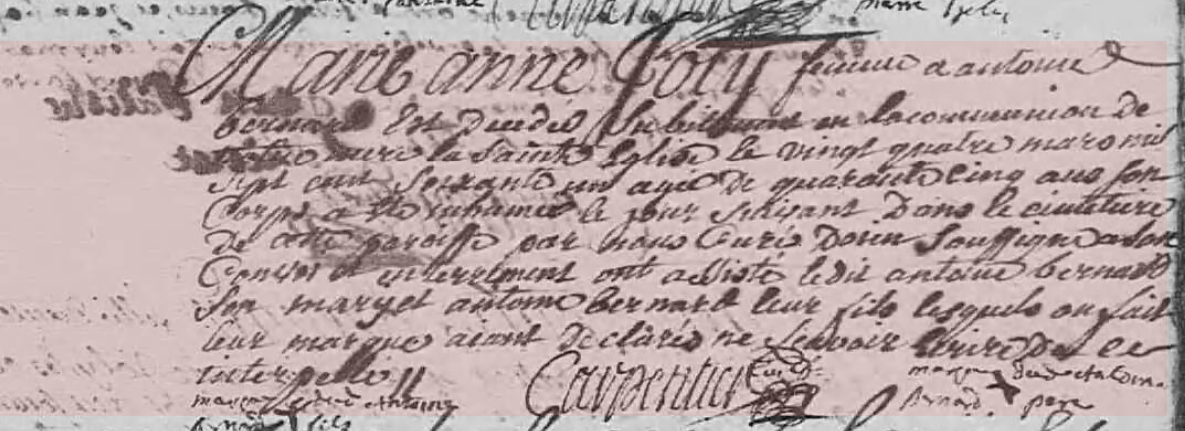 Marie anne Joly femme a antoine
bernard Est decedée subitement en la communion de
notre mere la sainte Eglise le vingt quatre mars mil
sept cent soixante un agée de quarante cinq ans son
Corps a été inhumée le jour suivant Dans le cimetiere
de cette paroisse par nous Curé Dorin soussigné a son
Convoi et enterrement ont assisté ledit antoine bernard
son mary et antoine bernard leur fils lesquels on fait
leur marque aiant declarés ne scavoir Ecrire de ce
interpellé
Carpentier Curé
marque dud antoine
Bernard pere
marque dud Antoine
Bernard fils